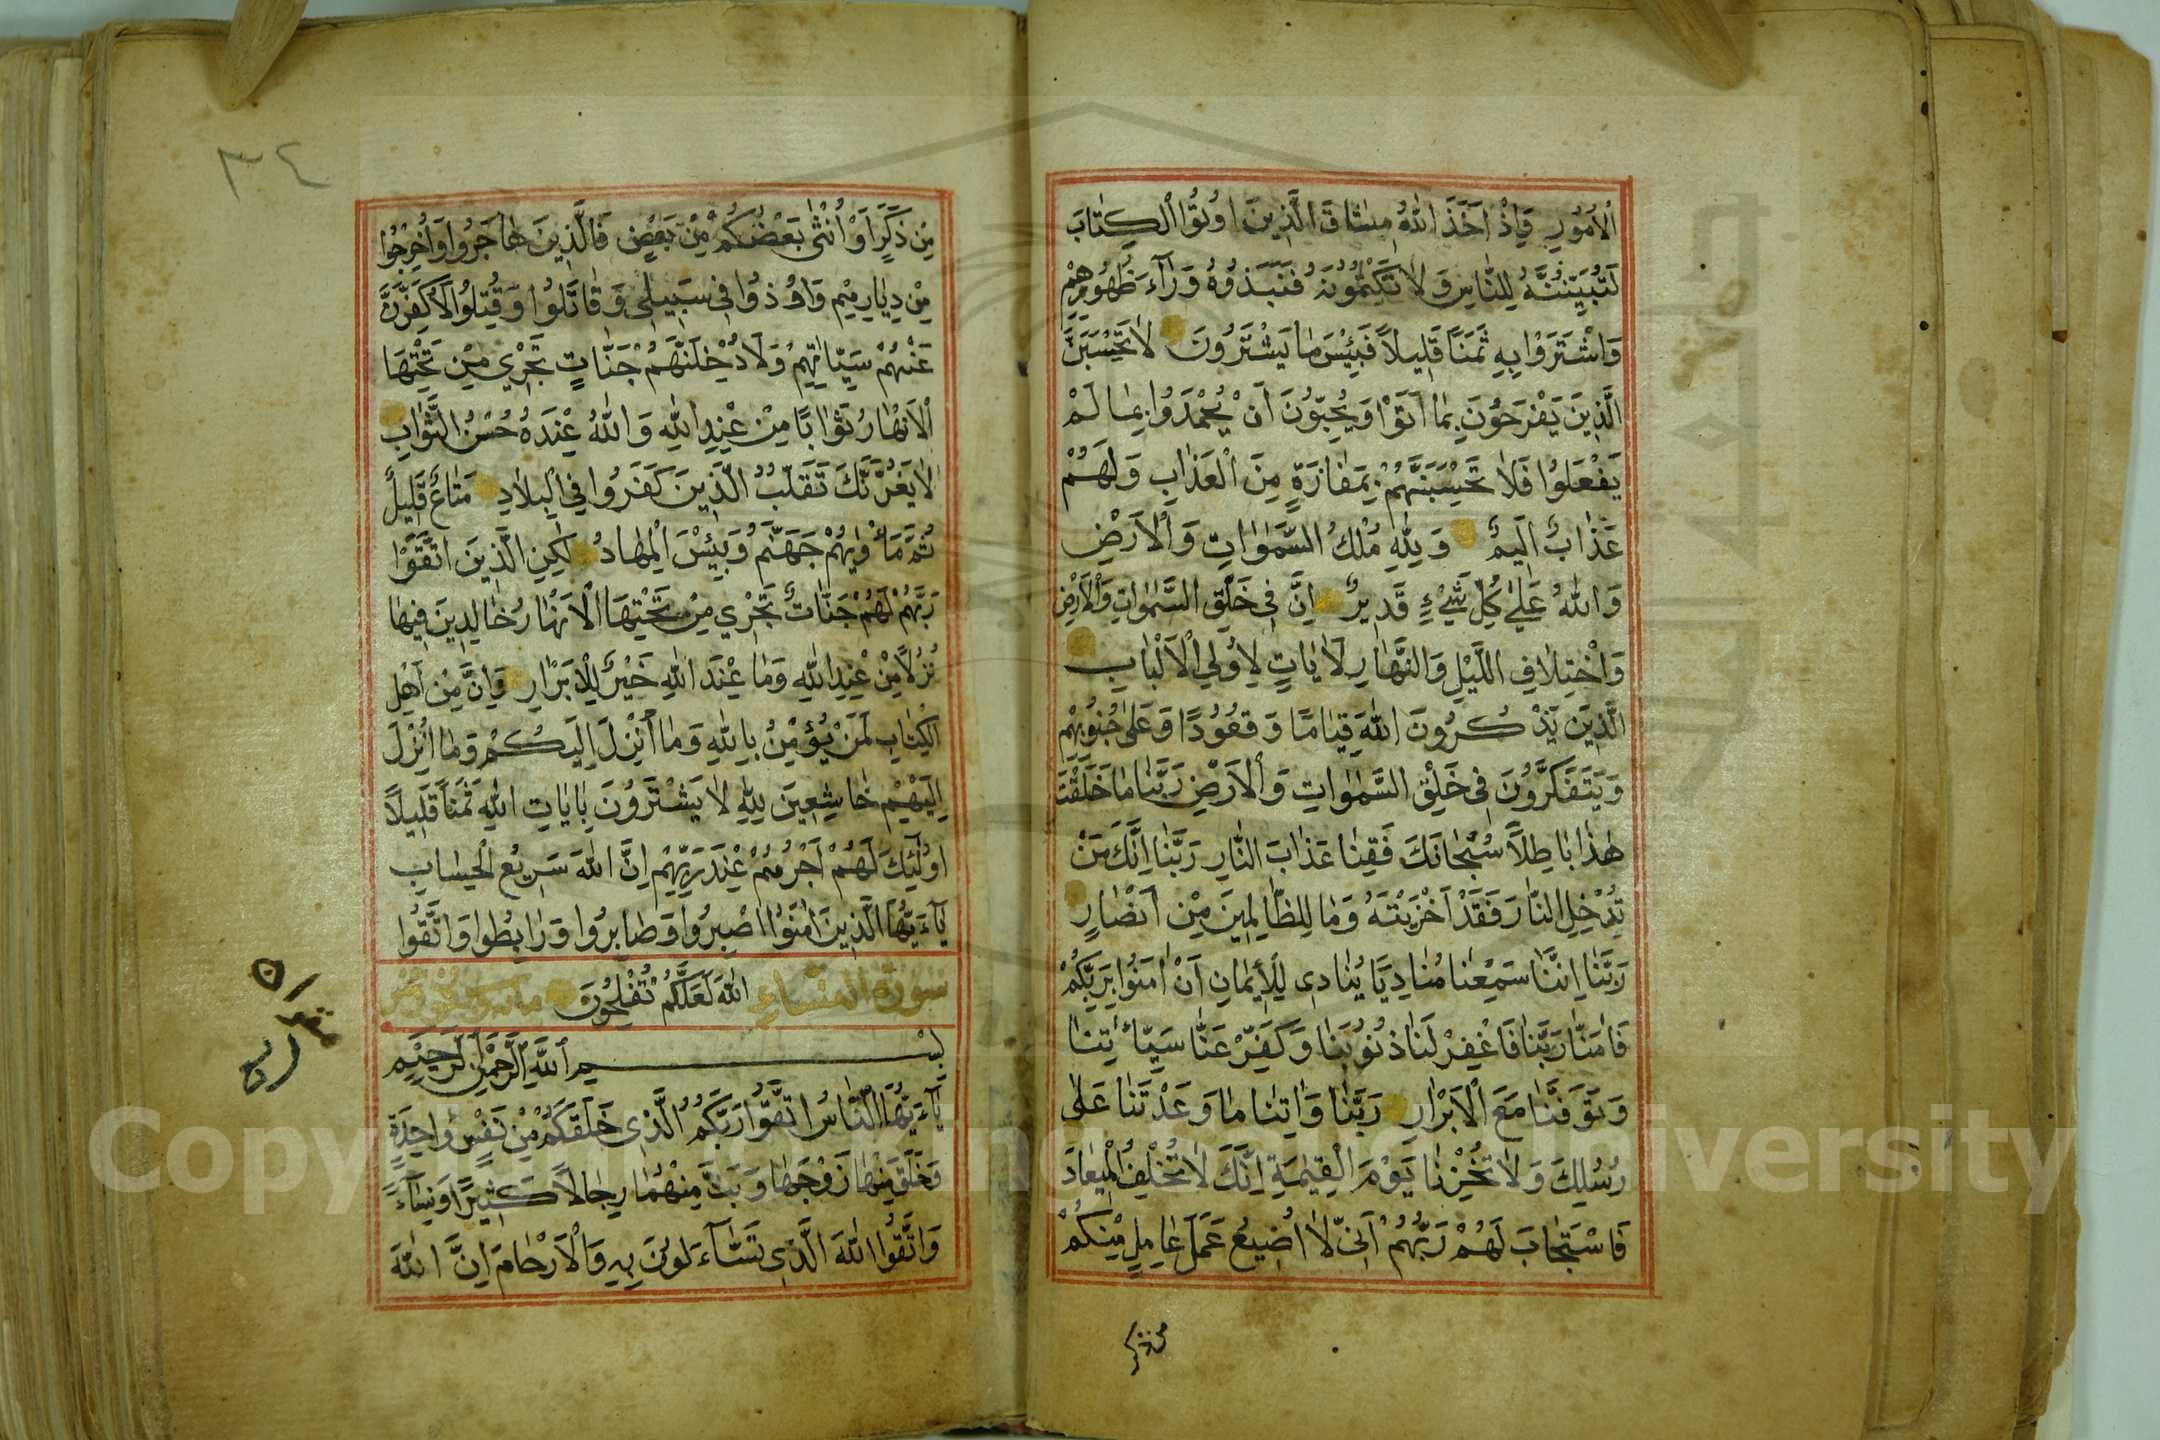 الْاُمُورِ وَاِذْ اَخَذَ اللّٰهُ مِيثَاقَ الَّذِينَ اُوتُوا الْكِتَابَ
لَتُبَيِّنُنَّهُ لِلنَّاسِ وَلَا تَكْتُمُونَهُ فَنَبَذُوهُ وَرَآءَ ظُهُورِهِمْ
وَاشْتَرَوْا بِهِ ثَمَنًا قَلِيلاً فَبِئْسَ مَا يَشْتَرُونَ لَا تَحْسَبَنَّ
الَّذِينَ يَفْرَحُونَ بِمَا اَتَوْا وَيُحِبُّونَ اَنْ يُحْمَدُوا بِمَا لَمْ
يَفْعَلُوا فَلَا تَحْسَبَنَّهُمْ بِمَفَازَةٍ مِنَ الْعَذَابِ وَلَهُمْ
عَذَابٌ اَلِيمٌ وَلِلّٰهِ مُلْكُ السَّمٰوَاتِ وَالْاَرْضِ
وَاللّٰهُ عَلٰى كُلِّ شَيْءٍ قَدِيرٌ اِنَّ فِي خَلْقِ السَّمٰوَاتِ وَالْاَرْضِ
وَاخْتِلَافِ اللَّيْلِ وَالنَّهَارِ لَاٰيَاتٍ لِاُولِي الْاَلْبَابِ
الَّذِينَ يَذْكُرُونَ اللّٰهَ قِيَامًا وَقُعُودًا وَعَلٰى جُنُوبِهِمْ
وَيَتَفَكَّرُونَ فِي خَلْقِ السَّمٰوَاتِ وَالْاَرْضِ رَبَّنَا مَا خَلَقْتَ
هٰذَا بَاطِلاً سُبْحَانَكَ فَقِنَا عَذَابَ النَّارِ رَبَّنَا اِنَّكَ مَنْ
تُدْخِلِ النَّارَ فَقَدْ اَخْزَيْتَهُ وَمَا لِلظَّالِمِينَ مِنْ اَنْصَارٍ
رَبَّنَا اِنَّنَا سَمِعْنَا مُنَادِيًا يُنَادِي لِلْاِيمَانِ اَنْ اٰمَنُوا بِرَبِّكُمْ
فَاٰمَنَّا رَبَّنَا فَاغْفِرْ لَنَا ذُنُوبَنَا وَكَفِّرْ عَنَّا سَيِّاٰتِنَا
وَتَوَفَّنَا مَعَ الْاَبْرَارِ رَبَّنَا وَاٰتِنَا مَا وَعَدْتَنَا عَلٰى
رُسُلِكَ وَلَا تُخْزِنَا يَوْمَ الْقِيٰمَةِ اِنَّكَ لَا تُخْلِفُ الْمِيعَادَ
فَاسْتَجَابَ لَهُمْ رَبُّهُمْ اَنِّي لَا اُضِيعُ عَمَلَ عَامِلٍ مِنْكُمْ
من ذكر
٣٤
مِنْ ذَكَرٍ اَوْ اُنْثٰى بَعْضُكُمْ مِنْ بَعْضٍ فَالَّذِينَ هَاجَرُوا وَاُخْرِجُوا
مِنْ دِيَارِهِمْ وَاُوذُوا فِي سَبِيلِي وَقَاتَلُوا وَقُتِلُوا لَاُكَفِّرَنَّ
عَنْهُمْ سَيِّاٰتِهِمْ وَلَاُدْخِلَنَّهُمْ جَنَّاتٍ تَجْرِي مِنْ تَحْتِهَا
الْاَنْهَارُ ثَوَابًا مِنْ عِنْدِ اللّٰهِ وَاللّٰهُ عِنْدَهُ حُسْنُ الثَّوَابِ
لَا يَغُرَّنَّكَ تَقَلُّبُ الَّذِينَ كَفَرُوا فِي الْبِلَادِ مَتَاعٌ قَلِيلٌ
ثُمَّ مَأْوٰيهُمْ جَهَنَّمُ وَبِئْسَ الْمِهَادُ لٰكِنِ الَّذِينَ اتَّقَوْا
رَبَّهُمْ لَهُمْ جَنَّاتٌ تَجْرِي مِنْ تَحْتِهَا الْاَنْهَارُ خَالِدِينَ فِيهَا
نُزُلاً مِنْ عِنْدِ اللّٰهِ وَمَا عِنْدَ اللّٰهِ خَيْرٌ لِلْاَبْرَارِ وَاِنَّ مِنْ اَهْلِ
الْكِتَابِ لَمَنْ يُؤْمِنُ بِاللّٰهِ وَمَا اُنْزِلَ اِلَيْكُمْ وَمَا اُنْزِلَ
اِلَيْهِمْ خَاشِعِينَ لِلّٰهِ لَا يَشْتَرُونَ بِاٰيَاتِ اللّٰهِ ثَمَنًا قَلِيلاً
اُولٰئِكَ لَهُمْ اَجْرُهُمْ عِنْدَ رَبِّهِمْ اِنَّ اللّٰهَ سَرِيعُ الْحِسَابِ
يَآءَيُّهَا الَّذِينَ اٰمَنُوا اصْبِرُوا وَصَابِرُوا وَرَابِطُوا وَاتَّقُوا
سورة النساء اللّٰهَ لَعَلَّكُمْ تُفْلِحُونَ
بِسْمِ اللّٰهِ الرَّحْمٰنِ الرَّحِيمِ
يَآءَيُّهَا النَّاسُ اتَّقُوا رَبَّكُمُ الَّذِي خَلَقَكُمْ مِنْ نَفْسٍ وَاحِدَةٍ
وَخَلَقَ مِنْهَا زَوْجَهَا وَبَثَّ مِنْهُمَا رِجَالاً كَثِيرًا وَنِسَآءً
وَاتَّقُوا اللّٰهَ الَّذِي تَسَّآءَلُونَ بِهِ وَالْاَرْحَامَ اِنَّ اللّٰهَ
Copyright © King Saud University